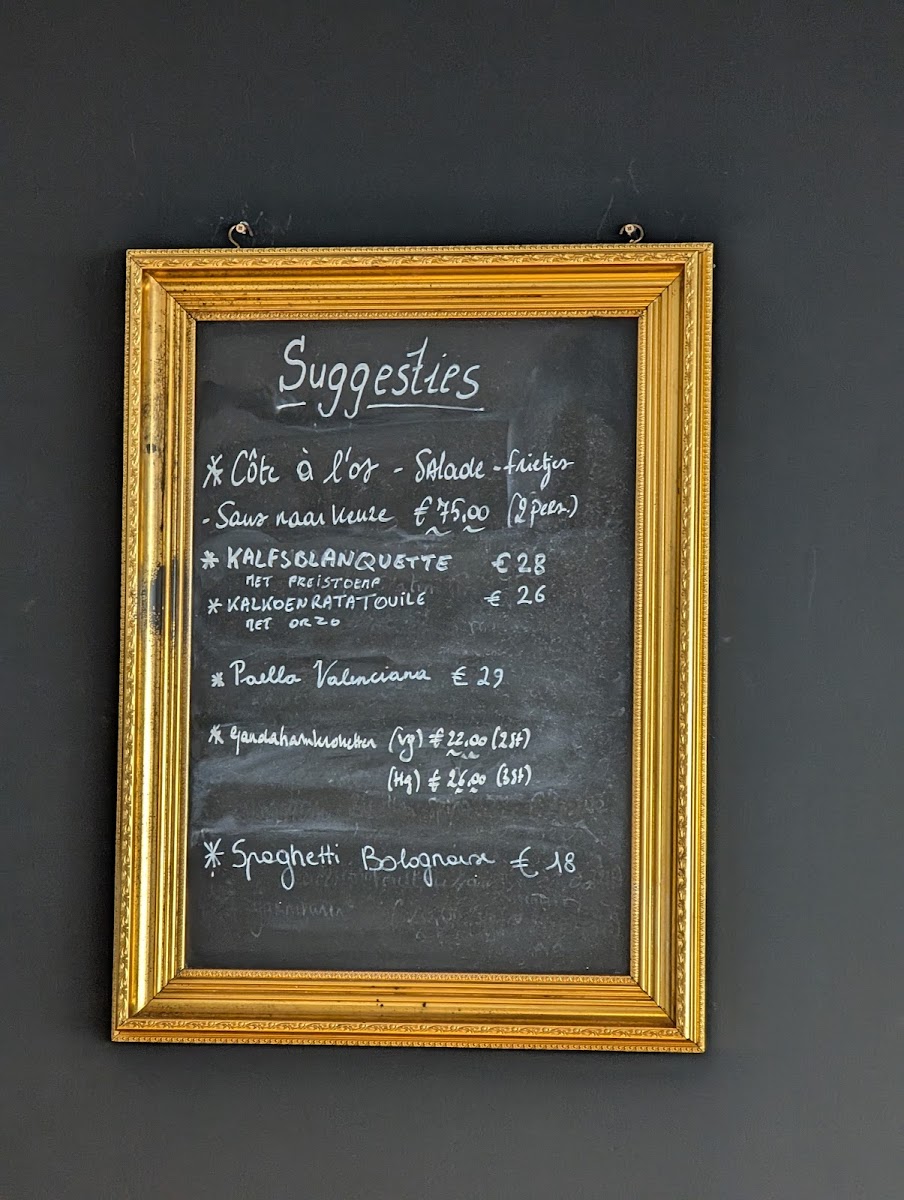 Suggesties
* Côte à l'os - Salade - frietjes
- Saus naar keuze € 75,00 (2 pers.)
* KALFSBLANQUETTE € 28
MET PREISTOEMP
* KALKOENRATATOUILE € 26
MET ORZO
* Paella Valenciana € 29
* Gandahamkroketten (vg) € 22,00 (2st)
(Hg) € 26,00 (3st)
* Spaghetti Bolognaise € 18